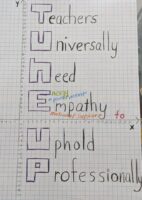 y
Teachers
Universally
Need
Empathy to
x
Uphold
Professionally